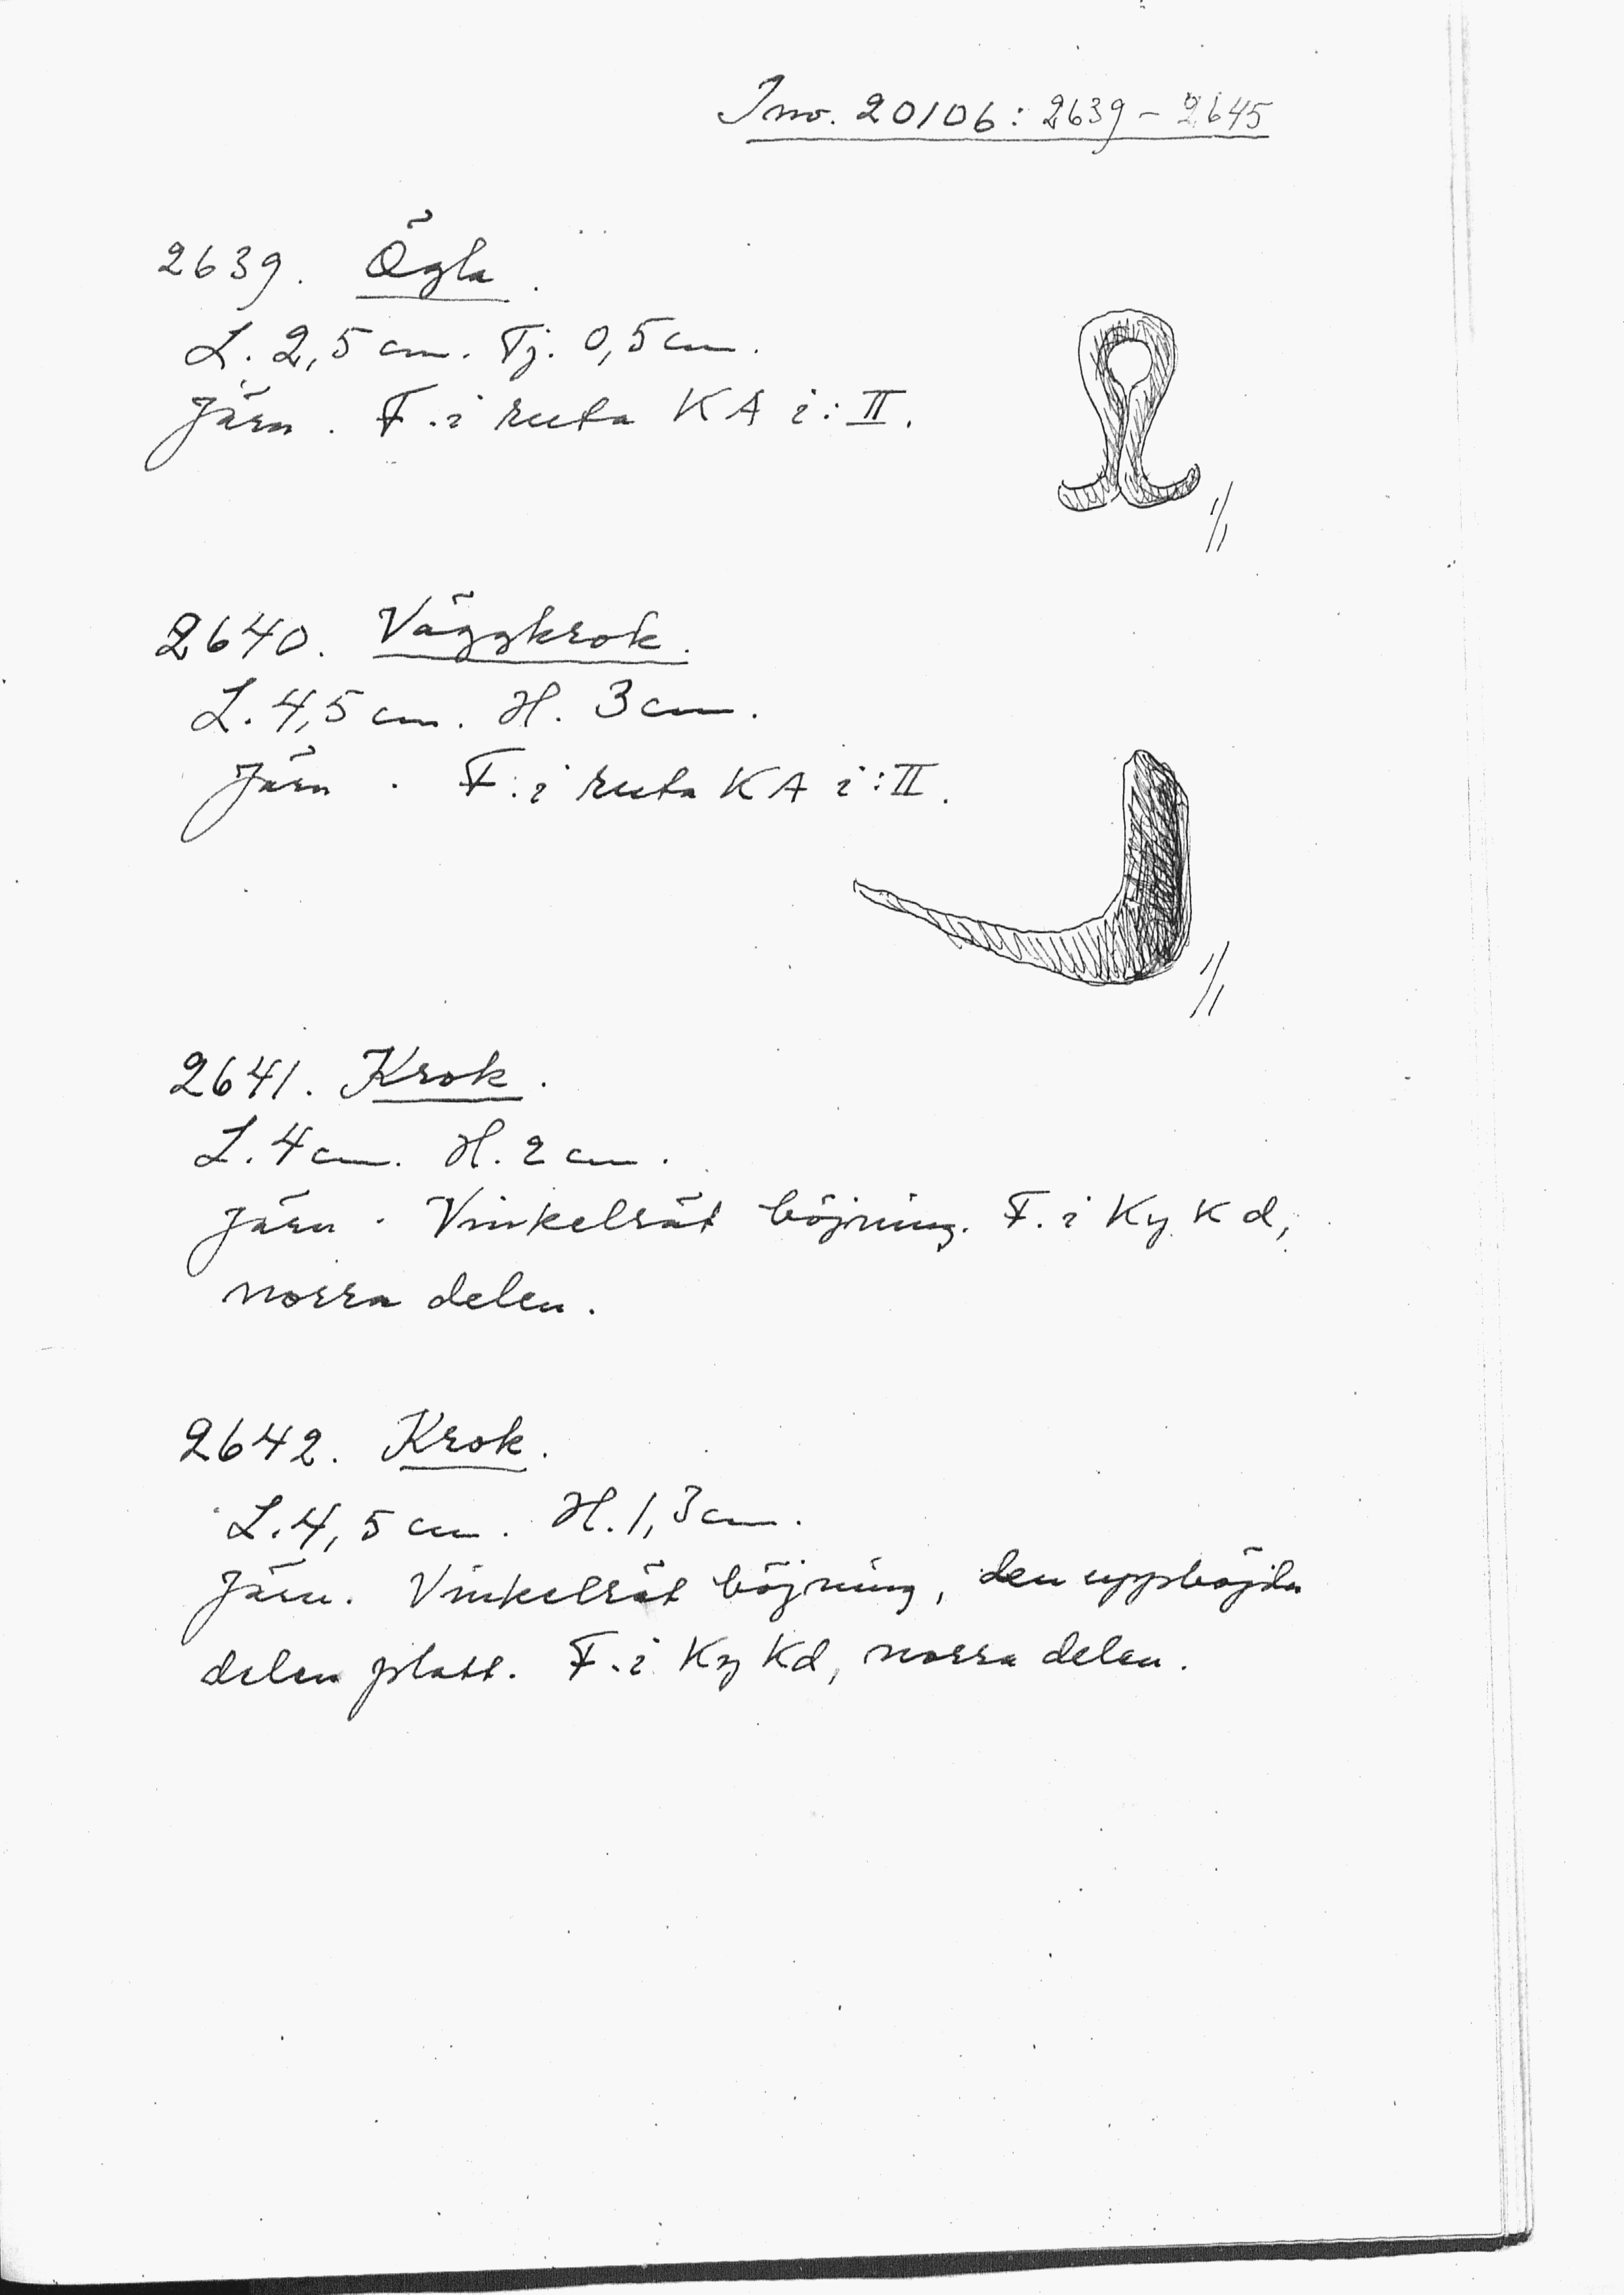 Inv. 20106: 2639-2645
2639. Ögla.
L. 2,5 cm. Tj. 0,5 cm.
Järn. F. i ruta KA i:II.
1/1
2640. Väggkrok.
L. 4,5 cm. H. 3 cm.
Järn. F. i ruta KA i:II.
1/1
2641. Krok.
L. 4 cm. H. 2 cm.
Järn. Vinkelrät böjning. F. i Ky Kd,
norra delen.
2642. Krok.
L. 4,5 cm. H. 1,3 cm.
Järn. Vinkelrät böjning, den uppböjda
delen platt. F. i Ky Kd, norra delen.